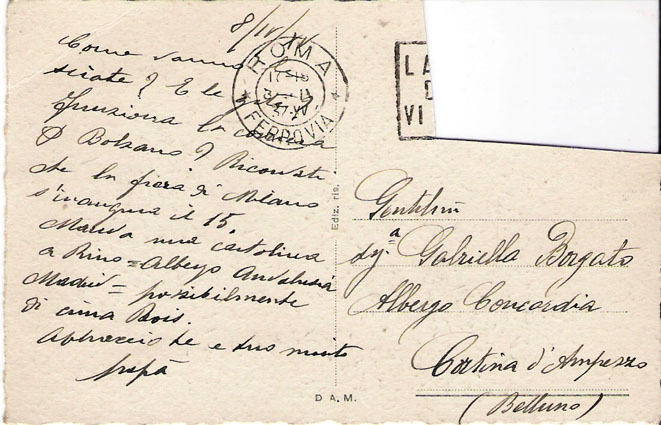 8/IV/XV
Come vanno le
sciate? E le
funziona la corriera
D Bolzano? Ricordati
che la fiera di Milano
s'inaugura il 15.
Manda una cartolina
a Rino = Albergo Andalusia
Madrid = possibilmente
di cima Bois.
Abbraccio te e tuo marito
papà
ROMA
FERROVIA
Ediz. ris.
D A.M.
LA
D
VI
Gentilm
sig.a Gabriella Borgato
Albergo Concordia
Cortina d'Ampezzo
(Belluno)